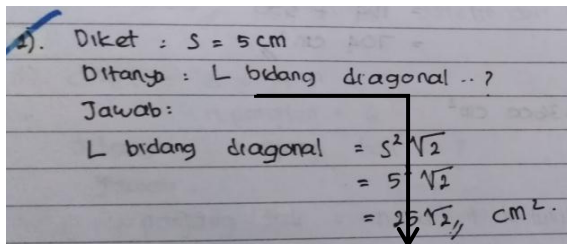 1). Diket : S = 5 cm
Ditanya : L bidang diagonal ..?
Jawab:
L bidang diagonal = S² √2
= 5² √2
= 25 √2,, cm².